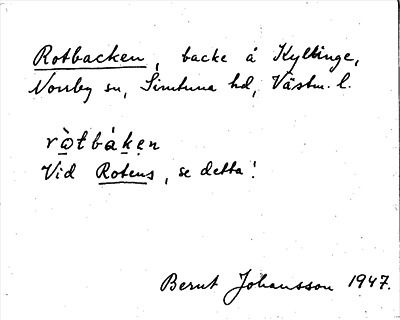 Rotbacken, backe å Kyllinge,
Norrby sn, Simtuna hd, Västm. l.
rὼtbáken
Vid Rotens, se detta!
Bernt Johansson 1947.